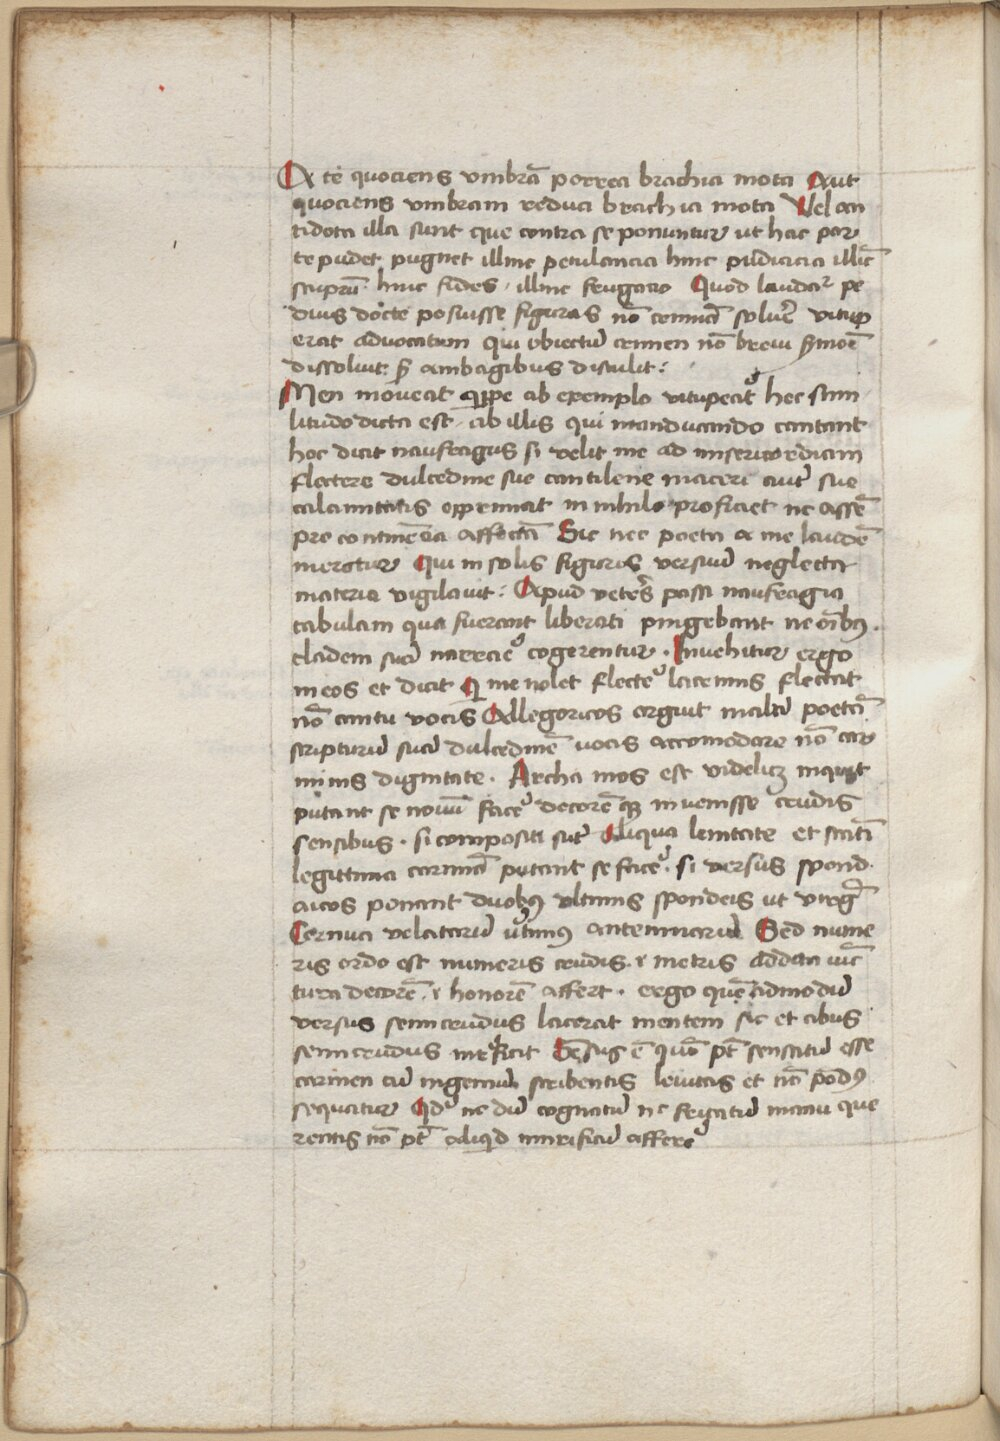 A te quociens vmbrā porrea brachia mota Aut
quociens vmbram reduci brachia mota Vel an
tidota illa sunt que contra se ponuntur ut hac par
te pudet pugnet illinc petulancia hinc pudicicia illīc
stuprū hinc fides · illinc frugatio Quod laudat pe
dius docte posuisse figuras nō crimīa soluēr vitup
erat aduocatum qui obiectū crimen nō breui smōe
dissoluit s ambagibus distulit :
Men moueat quippe ab exemplo vitupeat hec simi
litudo dicta est · ab illis qui manducando cantant
hoc dicit naufragus si velit me ad misericordiam
flectere dulcedine sue cantilene maceri aut sue
calamitatis opprimat in nihilo proficiet nc assē
pre continēcia affectā Sic nec poeta a me laudē
meretur Qui in solis figuris versuū neglecta
materia vigilauit : Apud vetēs passi naufragia
tabulam qua fuerant liberati pingebant ne oībus
cladem suā narrare cogerentur · Inuehitur ergo
in eos et dicit Qi me uolet flectere lacrimis flectat
nō cantu vocis Allegoricos arguit maliā poetā
scripturū suā dulcedinē uocis accomodare nō car
minis dignitate · Archa mos est videlicz inquit
putant se nouū facere decorē qz inuenisse crudis
sensibus · si compositi sūt Aliqua lenitate et statī
legittima carmīa putant se facere · si versus spond
aicos ponant duobus vltimis spondeis ut virgī
Cornua velatarū vtimus antennarū Sed nume
ris ordo est numeris crudis · et metris addita iūc
tura decorē · et honorē affert · ergo quē admodū
versus semicrudus lacerat mentem sic et cibus
semicrudus interficit Sēsus ē quō pt̄ sensatū esse
carmen cū ingeniū scribentis leuitas et nō pōdus
sequatur Qd nc dū cognatū nc frigatū manu que
rentis nō pt̄ aliqd mirificū afferre